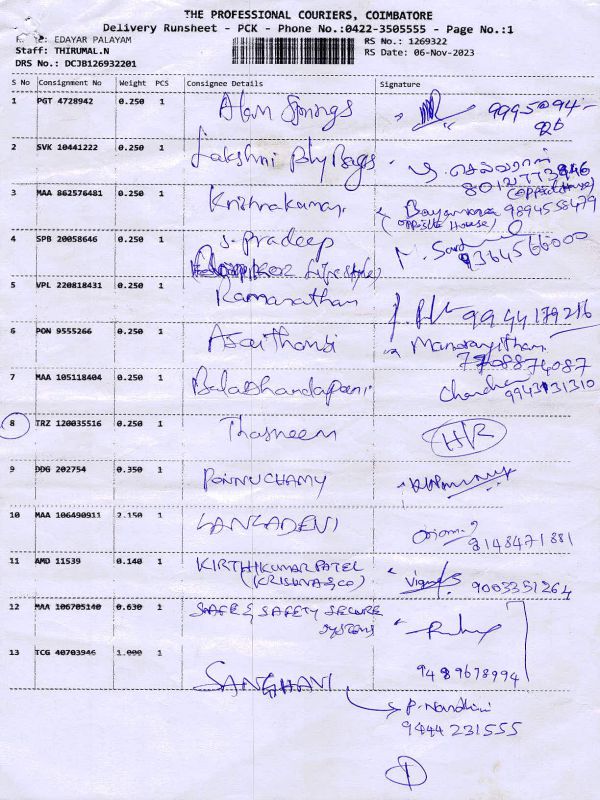 THE PROFESSIONAL COURIERS, COIMBATORE
Delivery Runsheet - PCK - Phone No.:0422-3505555 - Page No.:1
EDAYAR PALAYAM
RS No.: 1269322
Staff: THIRUMAL.N
RS Date: 06-Nov-2023
DRS No.: DCJB126932201
S No Consignment No Weight PCS Consignee Details Signature
1 PGT 4728942 0.250 1 Alan Springs
2 SVK 10441222 0.250 1 Lakshmi Poly Bags செல்வராஜ்
(opposite House)
3 MAA 862576481 0.250 1 Krishnakumar 9894558479
(opposite House)
4 SPB 20058646 0.250 1 S. Pradeep 9364566000
Lifestyle)
5 VPL 220818431 0.250 1 Ramanathan 9944179216
6 PON 9555266 0.250 1 Manoranjitham
7708874087
7 MAA 105118404 0.250 1 Chandra
9943131310
8 TRZ 120035516 0.250 1 Thasneem H/R
9 DDG 202754 0.350 1 PONNUCHAMY
10 MAA 106490911 2.150 1
8148471881
11 AMD 11539 0.140 1 KIRTHIKUMAR PATEL
(KRISHNA & CO) 9003351264
12 MAA 106705140 0.630 1 SAFE & SAFETY SECURE
SYSTEMS
9489678994
13 TCG 40703946 1.000 1
SANGHAVI
P. Nandhini
9444231555
1